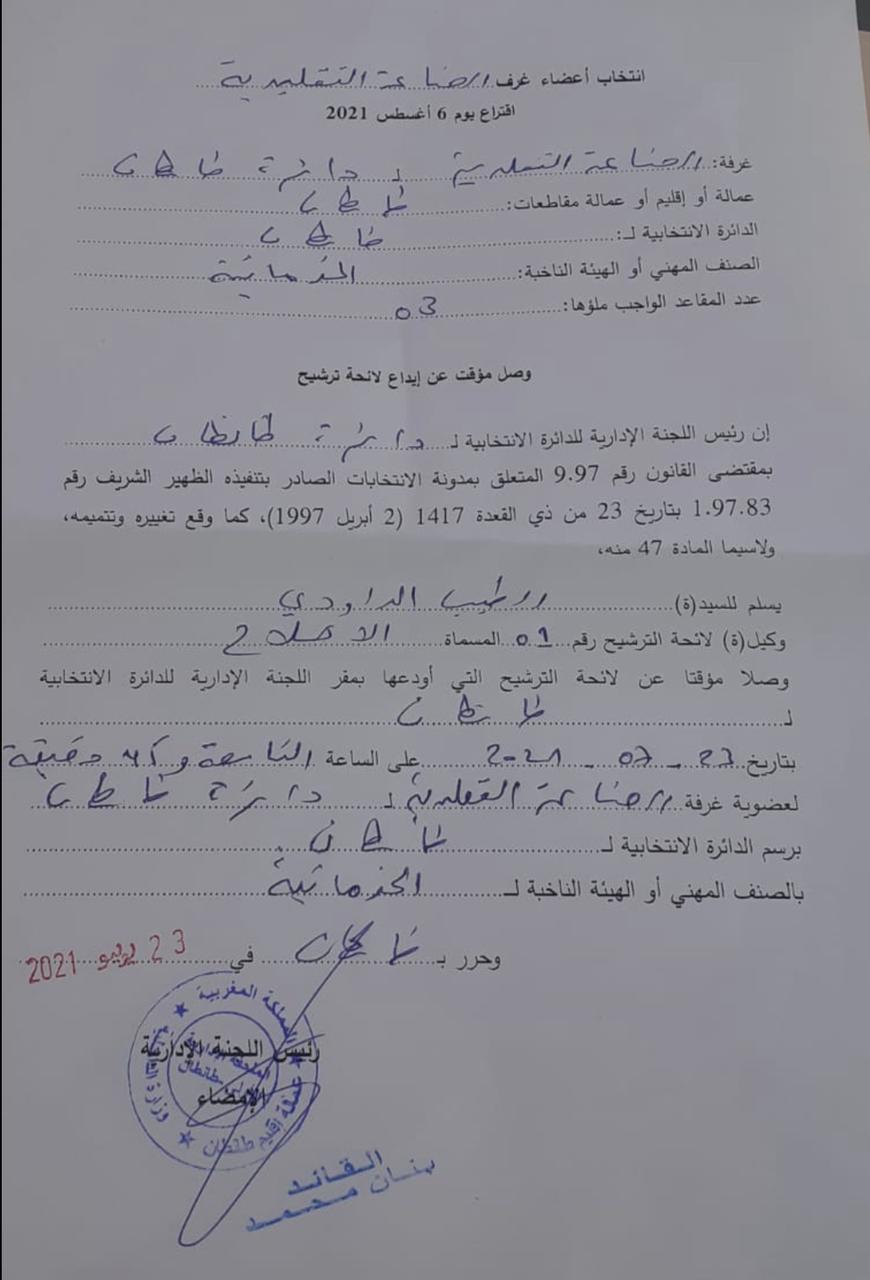 انتخاب أعضاء غرف الصناعة التقليدية
اقتراع يوم 6 أغسطس 2021
غرفة: الصناعة التقليدية لـ دائرة طانطان
عمالة أو إقليم أو عمالة مقاطعات: طانطان
الدائرة الانتخابية لـ: طانطان
الصنف المهني أو الهيئة الناخبة: الخدماتية
عدد المقاعد الواجب ملؤها: 03
وصل مؤقت عن إيداع لائحة ترشيح
إن رئيس اللجنة الإدارية للدائرة الانتخابية لـ دائرة طانطان
بمقتضى القانون رقم 9.97 المتعلق بمدونة الانتخابات الصادر بتنفيذه الظهير الشريف رقم
1.97.83 بتاريخ 23 من ذي القعدة 1417 (2 أبريل 1997)، كما وقع تغييره وتتميمه،
ولاسيما المادة 47 منه،
يسلم للسيد(ة) الطيب الداودي
وكيل(ة) لائحة الترشيح رقم 01 المسماة الاصلاح
وصلا مؤقتا عن لائحة الترشيح التي أودعها بمقر اللجنة الإدارية للدائرة الانتخابية
لـ طانطان
بتاريخ 23 - 07 - 2021 على الساعة التاسعة و دقيقة
لعضوية غرفة الصناعة التقليدية لـ دائرة طانطان
برسم الدائرة الانتخابية لـ طانطان
بالصنف المهني أو الهيئة الناخبة لـ الخدماتية
وحرر بـ طانطان في 23 يوليو 2021
المملكة المغربية
وزارة الداخلية
عمالة إقليم طانطان
رئيس اللجنة الإدارية
الإمضاء
القائد
بنان محمد